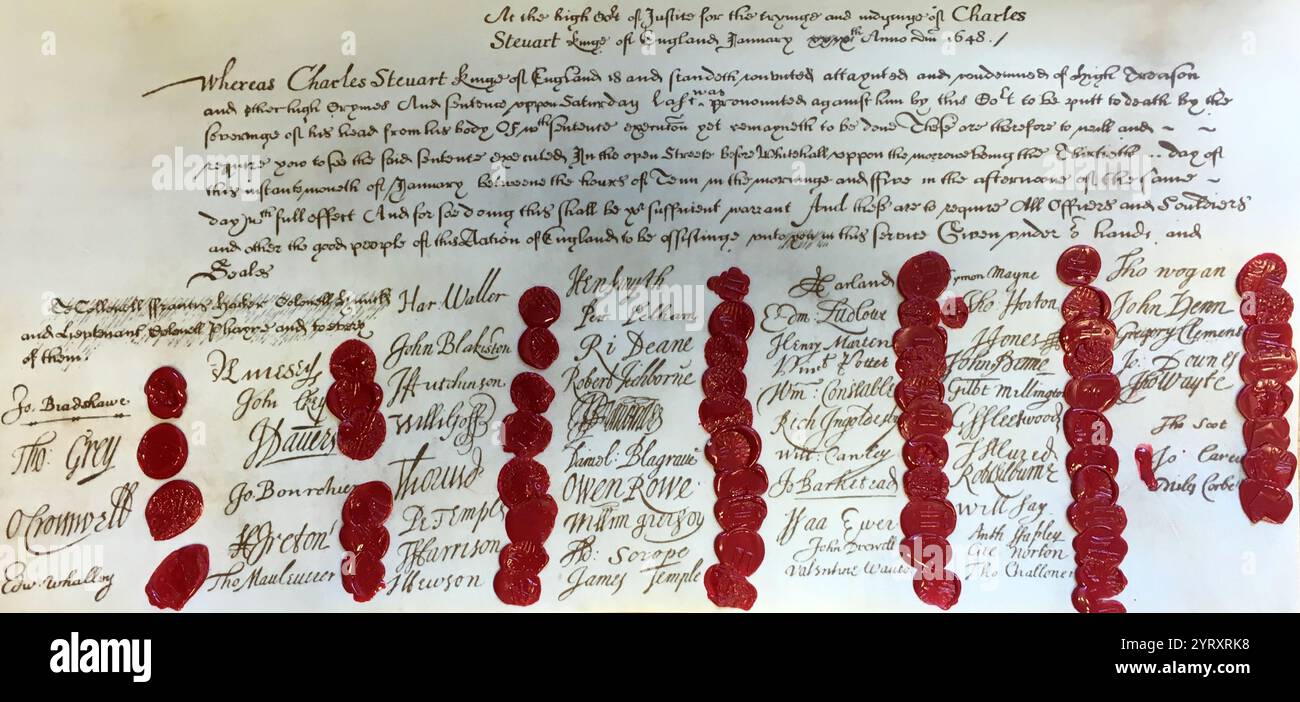 At the high Cort of Justice for the tryinge and iudginge of Charles
Steuart Kinge of England January xxixth Anno Dm 1648./
Whereas Charles Steuart Kinge of England is and standeth convicted attaynted and condemned of High Treason
and other high Crymes And sentence uppon Saturday last was pronounced against him by this Cort to be putt to death by the
severinge of his head from his body Of wch sentence execucon yet remayneth to be done These are therefore to will and
require you to see the said sentence executed In the open Streete before Whitehall uppon the morrowe being the Thirtieth day of
this instante moneth of January betweene the houres of Tenn in the morninge and ffive in the afternoone of the same
day wth full effect And for soe doing this shall be yor sufficient warrant And these are to require All Officers and Souldiers
and other the good people of this Nation of England to be assistinge unto you in this service Given under or hands and
Seales
To Collonell ffrancis Hacker Colonell Huncks
and Lieutenant Colonell Phayre and to every
of them
Jo. Bradshawe
Tho: Grey
O Cromwell
Edw: Whalley
M Livesey
John Okey
J Dauers
Jo. Bourchier
H Ireton
Tho Mauleuerer
Har Waller
John Blakiston
J Hutchinson
Willi Goff
Tho Pride
Pe Temple
T Harrison
J Hewson
Hen Smyth
Per Pelham
Ri Deane
Robert Tichborne
Daniel Blagrave
Owen Rowe
Willm Purefoy
Ad: Scrope
James Temple
A Garland
Edm: Ludlowe
Henry Marten
Vinct Potter
Wm: Constable
Rich Ingoldesby
Will Cawley
Jo Barkstead
Isaa Ewer
John Dixwell
Valentine Wauton
Symon Mayne
Tho Horton
J Jones
John Penne
Gilbt Millington
G ffleetwood
J Alured
Rob Lilburne
Will Say
Anth Stapley
Gre Norton
Tho Challoner
Tho Wogan
John Venn
Gregory Clement
Jo: Downes
Tho Wayte
Tho Scot
Jo: Carew
Miles Corbet
alamy
Image ID: 2S9YXRK8
www.alamy.com